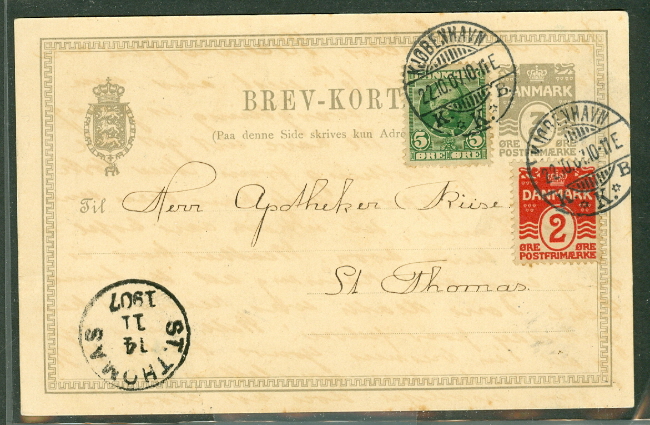 BREV-KORT
(Paa denne Side skrives kun Adre
Til Herr Apotheker Riise.
St Thomas.
KJØBENHAVN
22.10.07.10-11E
K. K. B
5 5
ØRE ØRE
DANMARK
ØRE ØRE
POSTFRIMÆRKE
KJØBENHAVN
10-11E
K. B
DANMARK
2
ØRE ØRE
POSTFRIMÆRKE
ST. THOMAS
14
11
1907